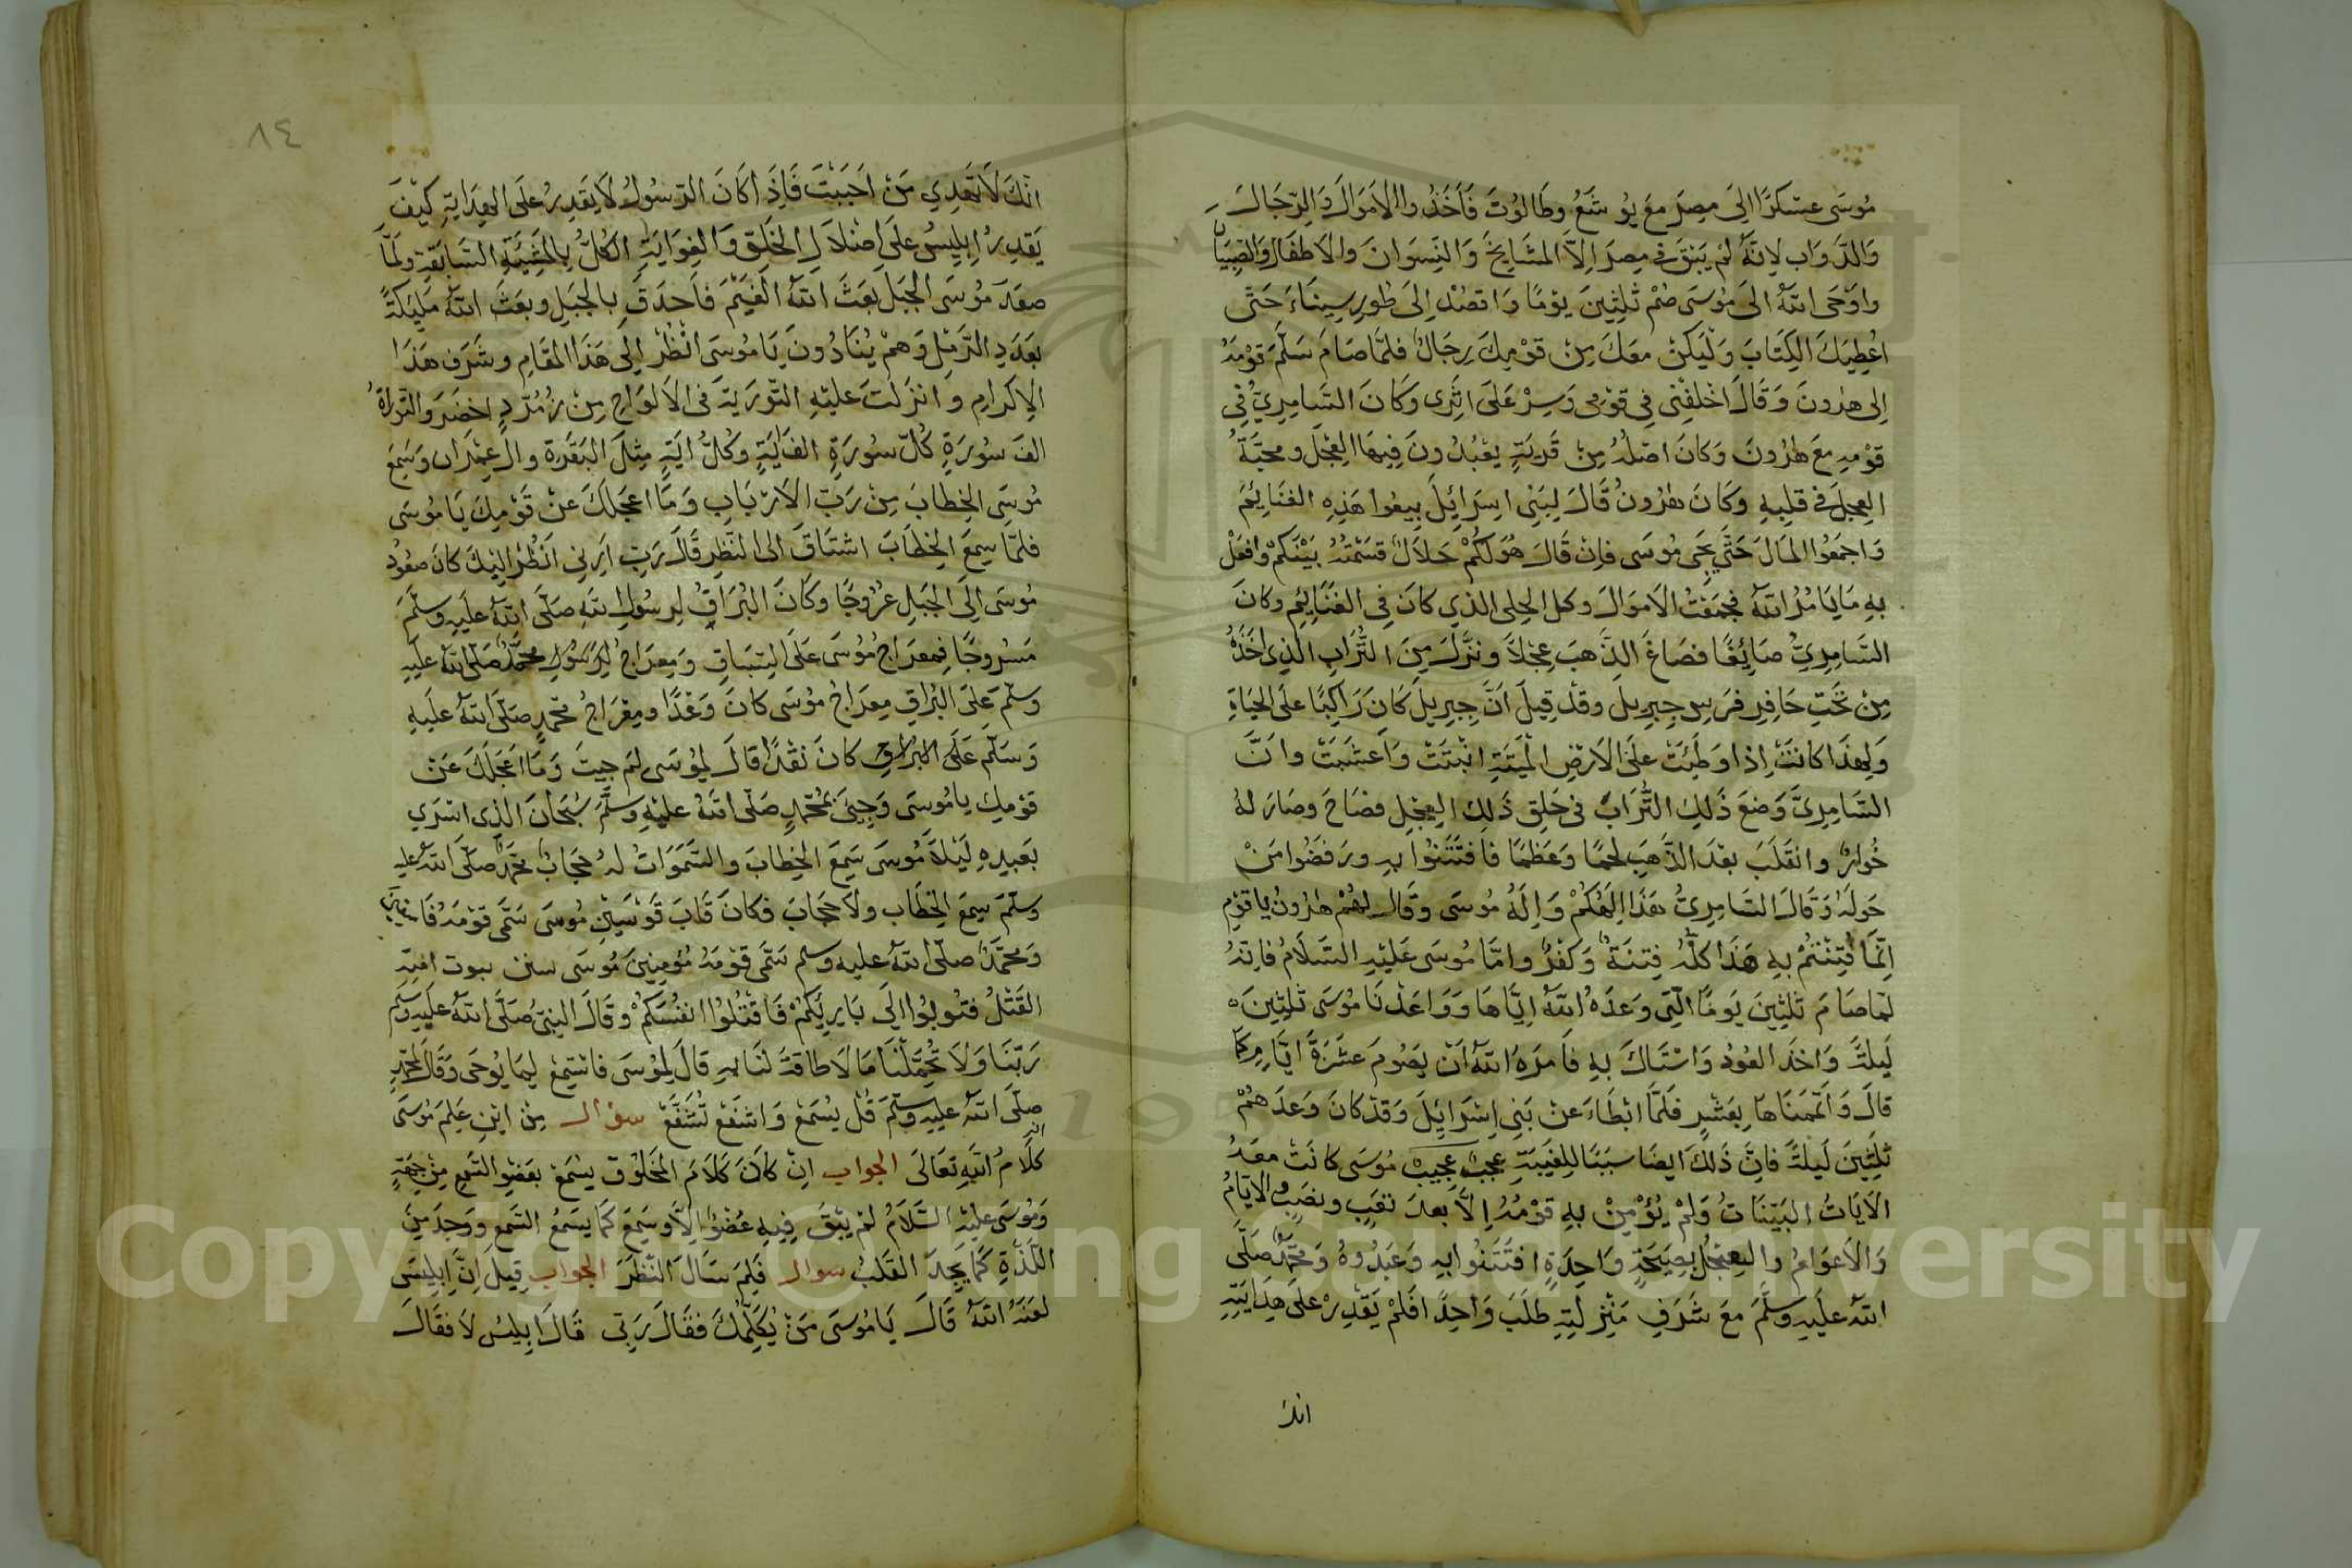 مُوسَى عسْكرًا الَى مِصرَ معَ يوُشَعُ وطَالُوُتَ فَأخَذُوا الاَمَوَالَ وَالرِّجَالَ
وَالدَّوَاب لِانَّهُ لَمْ يَبْقَ فى مِصرَ اِلاَّ المشَايِخَ وَالنِّسَوانَ والاَطفَالَ وَالصِّبيَانَ
واَوْحَى اللهُ الىَ مُوسَى صُمْ ثلٰثِينَ يَوْمًا وَاقصُدْ اِلىَ طُورِ سِينَاءَ حَتَّى
اعُطِيَكَ الكِتَابَ وَلْيَكُنْ معَكَ مِنْ قوْمِكَ رِجَالٌ فلمَّا صَامَ سَلَّمَ قوْمَهُ
اِلى هٰرُونَ وَقَالَ اخْلفْنِى فِى قوْمِى وَسِرْ عَلىَ اثَرِى وَكَانَ السَّامِرِيُّ فى
قوْمِهِ معَ هٰرُونَ وَكَانَ اصْلُهُ مِنْ قَريَةٍ يعْبُدُونَ فِيهَا العِجْلَ ومحبَّةُ
العِجلَ فى قلبِهِ وَكَانَ هٰرُونُ قَالَ لِبَنِى اسِرَائِلَ بِيعُوا هَذِهِ الغنَايِمَ
وَاجمَعُوا المَالَ حَتَّى يَجَى مُوسَى فاِنْ قَالَ هُوَ لَكُمْ حَلاَلٌ قسَمْتُهُ بَيْنَكمْ وافعَلْ
بِهِ مَا يَامُرُ اللهُ فجمَعَتْ الاَموَالَ وكل الحِلى الذي كانَ فِى الغنَايِمِ وكانَ
السَّامِرِيُّ صَايِغًا فصَاغَ الذَّهبَ عِجْلاً ونزَّلَ مِنَ التُّرَابِ الذِى اخَذَهُ
مِنْ تحَّتِ حَافِرِ فرَسِ جِبرِيلَ وقدْ قِيلَ اَنَّ جِبرِيلَ كَانَ رَاكِبًا علَى الحيَاةِ
وَلِهذَا كانَتْ اِذَا وَطِئَتْ علَى الاَرْضِ الميتَةِ انْبَتَتْ وَاَعشَبَتْ واَنَّ
السَّامِرِىَّ وَضعَ ذَلِكَ التُّرَابَ فى حَلقِ ذَلِكَ العِجْلِ فصَاحَ وصَارَ لهُ
خُوارٌ وانقَلَبَ بعْدَ الذَّهَبِ لحْمًا وَعَظمًا فافتَتَنُوا بِهِ ورَفضُوا مَنْ
حَولَهُ وَقَالَ السَّامِرِىُّ هَذَا اِلَهُكُمْ وَاِلَهُ مُوسَى وَقَالَ لهُمْ هٰرُونُ يَا قوْمِ
اِنَّمَا فُتِنْتُمْ بِهِ هَذَا كُلُّهُ فِتنَةٌ وَكُفْرٌ وامَّا مُوسَى عَليْهِ السَّلاَمُ فاِنَهُ
لمَّا صَامَ ثَلٰثِينَ يَومًا الَّتِى وَعَدَهُ اللهُ ايَّاهَا وَوَاعَدْنَا مُوسَى ثلٰثِينَ
لَيلَةً وَاخذَ العُودَ وَاسْتَاكَ بهِ فاَمرَهُ اللهُ اَنْ يصُومَ عشَرَةَ ايَّامٍ كمَا
قالَ وَاَتْمَمنَاهَا بِعَشْرٍ فَلَمَّا ابْطَاءَ عنْ بَنِى اِسْرَايِلَ وَقدْ كانَ وَعدَهمُ
ثلٰثِينَ لَيلَةً فاِنَّ ذَلكَ ايضًا سبَبًا لِلغَيبَةِ عجبٌ عجِيبٌ مُوسَى كانَتْ معَهُ
الاَيَاتُ البيّنَاتُ وَلَمْ يُؤْمِنْ بهِ قوْمُهُ اِلاَّ بعدَ تعَبٍ ونصَبٍ والايَّامُ
وَالاَعوَامُ والعِجْلُ بِصَيحَةٍ وَاحِدَةٍ افتَتَنُوا بهِ وَعَبَدُوهُ وَمحَمَّدٌ صَلَّى
اللهُ علَيهِ وسلَّمَ معَ شَرَفِ مَنْزلَتِهِ طلَبَ وَاحِدًا فَلَمْ يَقْدِرْ علَى هِدَايَتِهِ
انك
٨٤
انَّكَ لَا تَهْدِي مَنْ اَحبَبْتَ فَاِذَا كَانَ الرَّسُولُ لاَ يَقدِرُ علَى الهِدَايَةِ كَيْفَ
يَقدِرُ اِبلِيسُ علَى اِضْلاَلِ الخلَقِ وَالغِوَايَةِ الكُلُّ بِالمشِيَّةِ السَّابِقَةِ ولَمَّا
صعَدَ مُوسَى الجبَلَ بَعَثَ اللهُ الغَيْمَ فَاَحدَقَ بالجبَلِ وبعَثَ اللهُ مَلٰئِكَةً
بعَدَدِ الرَّمْلِ وَهمْ يُنَادُونَ يَا مُوسَى انْظُرْ اِلى هَذَا المقَامِ وشَرَفِ هَذَا
الاِكرَامِ وَانْزَلتَ علَيْهِ التَّوْرَيةَ فى الاَلوَاحِ مِنْ زُمُرُّدٍ اخضَرَ والتَّوراةُ
الفَ سُورَةٍ كُلّ سُورَةٍ الفَ ايَةٍ وكُلُّ ايَةٍ مِثلَ البَقَرة والِ عِمْرَان وسَمِعَ
مُوسَى الخِطابَ مِنْ رَبّ الاَرْبَابِ وَمَا اعجَلَكَ عنْ قَوْمِكَ يَا مُوسَى
فلَمّا سِمعَ الخِطَابَ اشتَاقَ الى النَّظرِ قَالَ رَبّ ارِنِى اَنْظُرْ اليْكَ كانَ صعُودُ
مُوسَى اِلَى الجَبَلِ عرُوجًا وَكَانَ البُرَاقُ لِرسُولِ اللهِ صَلّى اللهُ علَيهِ وسلّمَ
مَسْرُوجًا فمِعرَاجُ مُوسَى عَلَى السّبَاقِ وَمِعرَاجُ الرّسُولِ محَمّدٌ صَلّى اللهُ علَيهِ
وسلّمَ علَى البُرَاقِ مِعرَاجُ مُوسَى كانَ وَعْدًا ومِعْرَاجُ محَمّدٍ صَلّى اللهُ علَيهِ
وَسَلّمَ علَى البراقِ كانَ نقْدًا قالَ لِمُوسَى لِمَ جِيتَ وَمَا اَعجَلَكَ عَنْ
قوْمِكَ يا مُوسَى وَجِىَ بمُحَمّدٍ صَلّى اللهُ علَيْهِ وسَلَّمَ سُبْحَانَ الّذِى اسْرَي
بعَبدِهِ لَيْلاً مُوسَى سَمِعَ الخِطابَ والسَّمَوَاتُ لهُ حِجَابٌ محَمّدٌ صَلّى اللهُ عليهِ
وسلّمَ سِمعَ الخِطَابَ ولاَ حِجَابَ فكانَ قَابَ قَوْسَيْنِ مُوسَى سَمَّى قوْمَهُ فَاسِقِينَ
وَمحَمَّدٌ صلّى اللهُ عليهِ وسلم سَمَّى قوْمَهُ مُؤْمِنِينَ مُوسَى
القَتْلُ فتُوبُوا الَى بَارِيِكُمْ فَاقتُلُوا انفُسَكُمْ وقَالَ النّبىّ صَلَّى اللهُ عليهِ وسلّمَ
رَبّنَا وَلاَ تُحَمِّلْنَا مَا لاَ طاقَةَ لنَا بِهِ قالَ لِمُوسَى فاسْتَمِعْ لِمَا يُوحَى وَقَالَ لمحمَّدٍ
صَلّى اللهُ عليهِ وسلَّمَ قُلْ يُسْمَعْ وَاشفَعْ تُشَفَّعْ سؤال مِنْ ايْنَ عَلِمَ مُوسَى
انه كلَامُ اللهِ تعَالَى الجواب انّ كانَ كَلاَمَ المَخلُوْق يسْمَعْ بعَضْوِ السَّمِع مِنْ جِهَةٍ
وَمُوسَى عليْهِ السَّلاَمُ لَمْ يَبْقَ فِيهِ عُضْوٌ اِلاَّ وسَمِعَ كمَا يسمَعُ السَّمعِ ووَجدَ مِنَ
اللّذّةِ كمَا يَجدَ القَلبُ سوال فَلِمَ سَالَ النّظَرَ الجواب قِيلَ اِنَّ اِبلِيسَ
لعنَهُ اللهُ قَالَ يَا مُوسَى مَنْ يُكَلّمُكَ فقَالَ رَبّى قَالَ اِبلِيسُ لاَ فقَالَ
Copyright © King Saud University